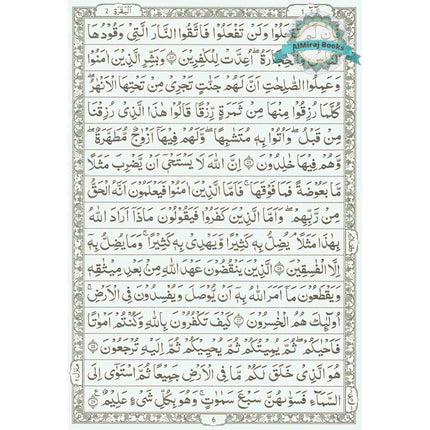 البقرة ٢
الٓمّٓ ١
AlMiraj Books
تَفْعَلُوْا وَلَنْ تَفْعَلُوْا فَاتَّقُوا النَّارَ الَّتِيْ وَقُوْدُهَا
وَالْحِجَارَةُ ۚ اُعِدَّتْ لِلْكٰفِرِيْنَ ۝ وَبَشِّرِ الَّذِيْنَ اٰمَنُوْا
وَعَمِلُوا الصّٰلِحٰتِ اَنَّ لَهُمْ جَنّٰتٍ تَجْرِيْ مِنْ تَحْتِهَا الْاَنْهٰرُ ؕ
كُلَّمَا رُزِقُوْا مِنْهَا مِنْ ثَمَرَةٍ رِّزْقًا ۙ قَالُوْا هٰذَا الَّذِيْ رُزِقْنَا
مِنْ قَبْلُ ۙ وَاُتُوْا بِهٖ مُتَشَابِهًا ؕ وَلَهُمْ فِيْهَاۤ اَزْوَاجٌ مُّطَهَّرَةٌ ۙ
وَّهُمْ فِيْهَا خٰلِدُوْنَ ۝ اِنَّ اللّٰهَ لَا يَسْتَحْيٖۤ اَنْ يَّضْرِبَ مَثَلًا
مَّا بَعُوْضَةً فَمَا فَوْقَهَا ؕ فَاَمَّا الَّذِيْنَ اٰمَنُوْا فَيَعْلَمُوْنَ اَنَّهُ الْحَقُّ
مِنْ رَّبِّهِمْ ۚ وَاَمَّا الَّذِيْنَ كَفَرُوْا فَيَقُوْلُوْنَ مَاذَاۤ اَرَادَ اللّٰهُ
بِهٰذَا مَثَلًا ۘ يُضِلُّ بِهٖ كَثِيْرًا ۙ وَّيَهْدِيْ بِهٖ كَثِيْرًا ؕ وَمَا يُضِلُّ بِهٖۤ
اِلَّا الْفٰسِقِيْنَ ۝ الَّذِيْنَ يَنْقُضُوْنَ عَهْدَ اللّٰهِ مِنْۢ بَعْدِ مِيْثَاقِهٖ ۪
وَيَقْطَعُوْنَ مَاۤ اَمَرَ اللّٰهُ بِهٖۤ اَنْ يُّوْصَلَ وَيُفْسِدُوْنَ فِي الْاَرْضِ ؕ
اُولٰٓئِكَ هُمُ الْخٰسِرُوْنَ ۝ كَيْفَ تَكْفُرُوْنَ بِاللّٰهِ وَكُنْتُمْ اَمْوَاتًا
فَاَحْيَاكُمْ ۚ ثُمَّ يُمِيْتُكُمْ ثُمَّ يُحْيِيْكُمْ ثُمَّ اِلَيْهِ تُرْجَعُوْنَ ۝
هُوَ الَّذِيْ خَلَقَ لَكُمْ مَّا فِي الْاَرْضِ جَمِيْعًا ۗ ثُمَّ اسْتَوٰۤى اِلَى
السَّمَآءِ فَسَوّٰىهُنَّ سَبْعَ سَمٰوٰتٍ ؕ وَهُوَ بِكُلِّ شَيْءٍ عَلِيْمٌ ۝
6